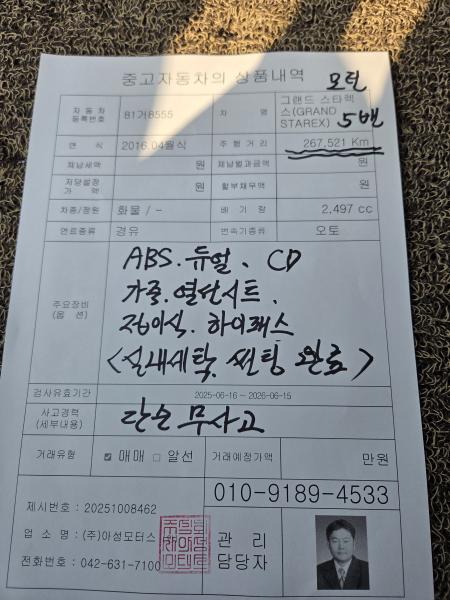 중고자동차의 상품내역 모던
자동차등록번호 81거8555 차 명 그랜드 스타렉스(GRAND STAREX) 5밴
연 식 2016.04월식 주 행 거 리 267,521 Km
체납세액 원 체납별과금액 원
저당설정가 액 원 할부채무액 원
차종/정원 화물 / - 배 기 량 2,497 cc
연료종류 경유 변속기종류 오토
주요장비(옵 션)
ABS. 듀얼. CD
가죽. 열선시트.
접이식. 하이패스
<실내세탁. 썬팅 완료>
검사유효기간 2025-06-16 ~ 2026-06-15
사고경력(세부내용) 단순 무사고
거래유형 ☑ 매매 □ 알선 거래예정가액 만원
제시번호 : 20251008462 010-9189-4533
업 소 명 : (주)아성모터스 관 리
전화번호 : 042-631-7100 담당자